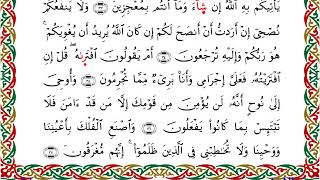 يَأْتِيكُم بِهِ ٱللَّهُ إِن شَآءَ وَمَآ أَنتُم بِمُعْجِزِينَ ٣٣ وَلَا يَنفَعُكُمْ
نُصْحِىٓ إِنْ أَرَدتُّ أَنْ أَنصَحَ لَكُمْ إِن كَانَ ٱللَّهُ يُرِيدُ أَن يُغْوِيَكُمْ ۚ
هُوَ رَبُّكُمْ وَإِلَيْهِ تُرْجَعُونَ ٣٤ أَمْ يَقُولُونَ ٱفْتَرَىٰهُ ۖ قُلْ إِنِ
ٱفْتَرَيْتُهُۥ فَعَلَىَّ إِجْرَامِى وَأَنَا۠ بَرِىٓءٌ مِّمَّا تُجْرِمُونَ ٣٥ وَأُوحِىَ
إِلَىٰ نُوحٍ أَنَّهُۥ لَن يُؤْمِنَ مِن قَوْمِكَ إِلَّا مَن قَدْ ءَامَنَ فَلَا
تَبْتَئِسْ بِمَا كَانُوا۟ يَفْعَلُونَ ٣٦ وَٱصْنَعِ ٱلْفُلْكَ بِأَعْيُنِنَا
وَوَحْيِنَا وَلَا تُخَـٰطِبْنِى فِى ٱلَّذِينَ ظَلَمُوٓا۟ ۚ إِنَّهُم مُّغْرَقُونَ ٣٧